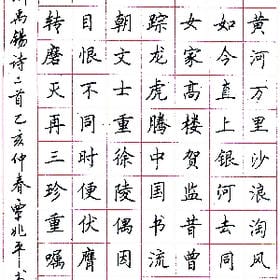 黄河万里沙浪淘风
如今直上银河去同
女家高楼贺监昔曾
踪龙虎腾中国书流
朝文士重徐陵偶因
目恨不同时便伏膺
转磨灭再三珍重嘱
禹锡诗二首乙亥仲春覃兆平书